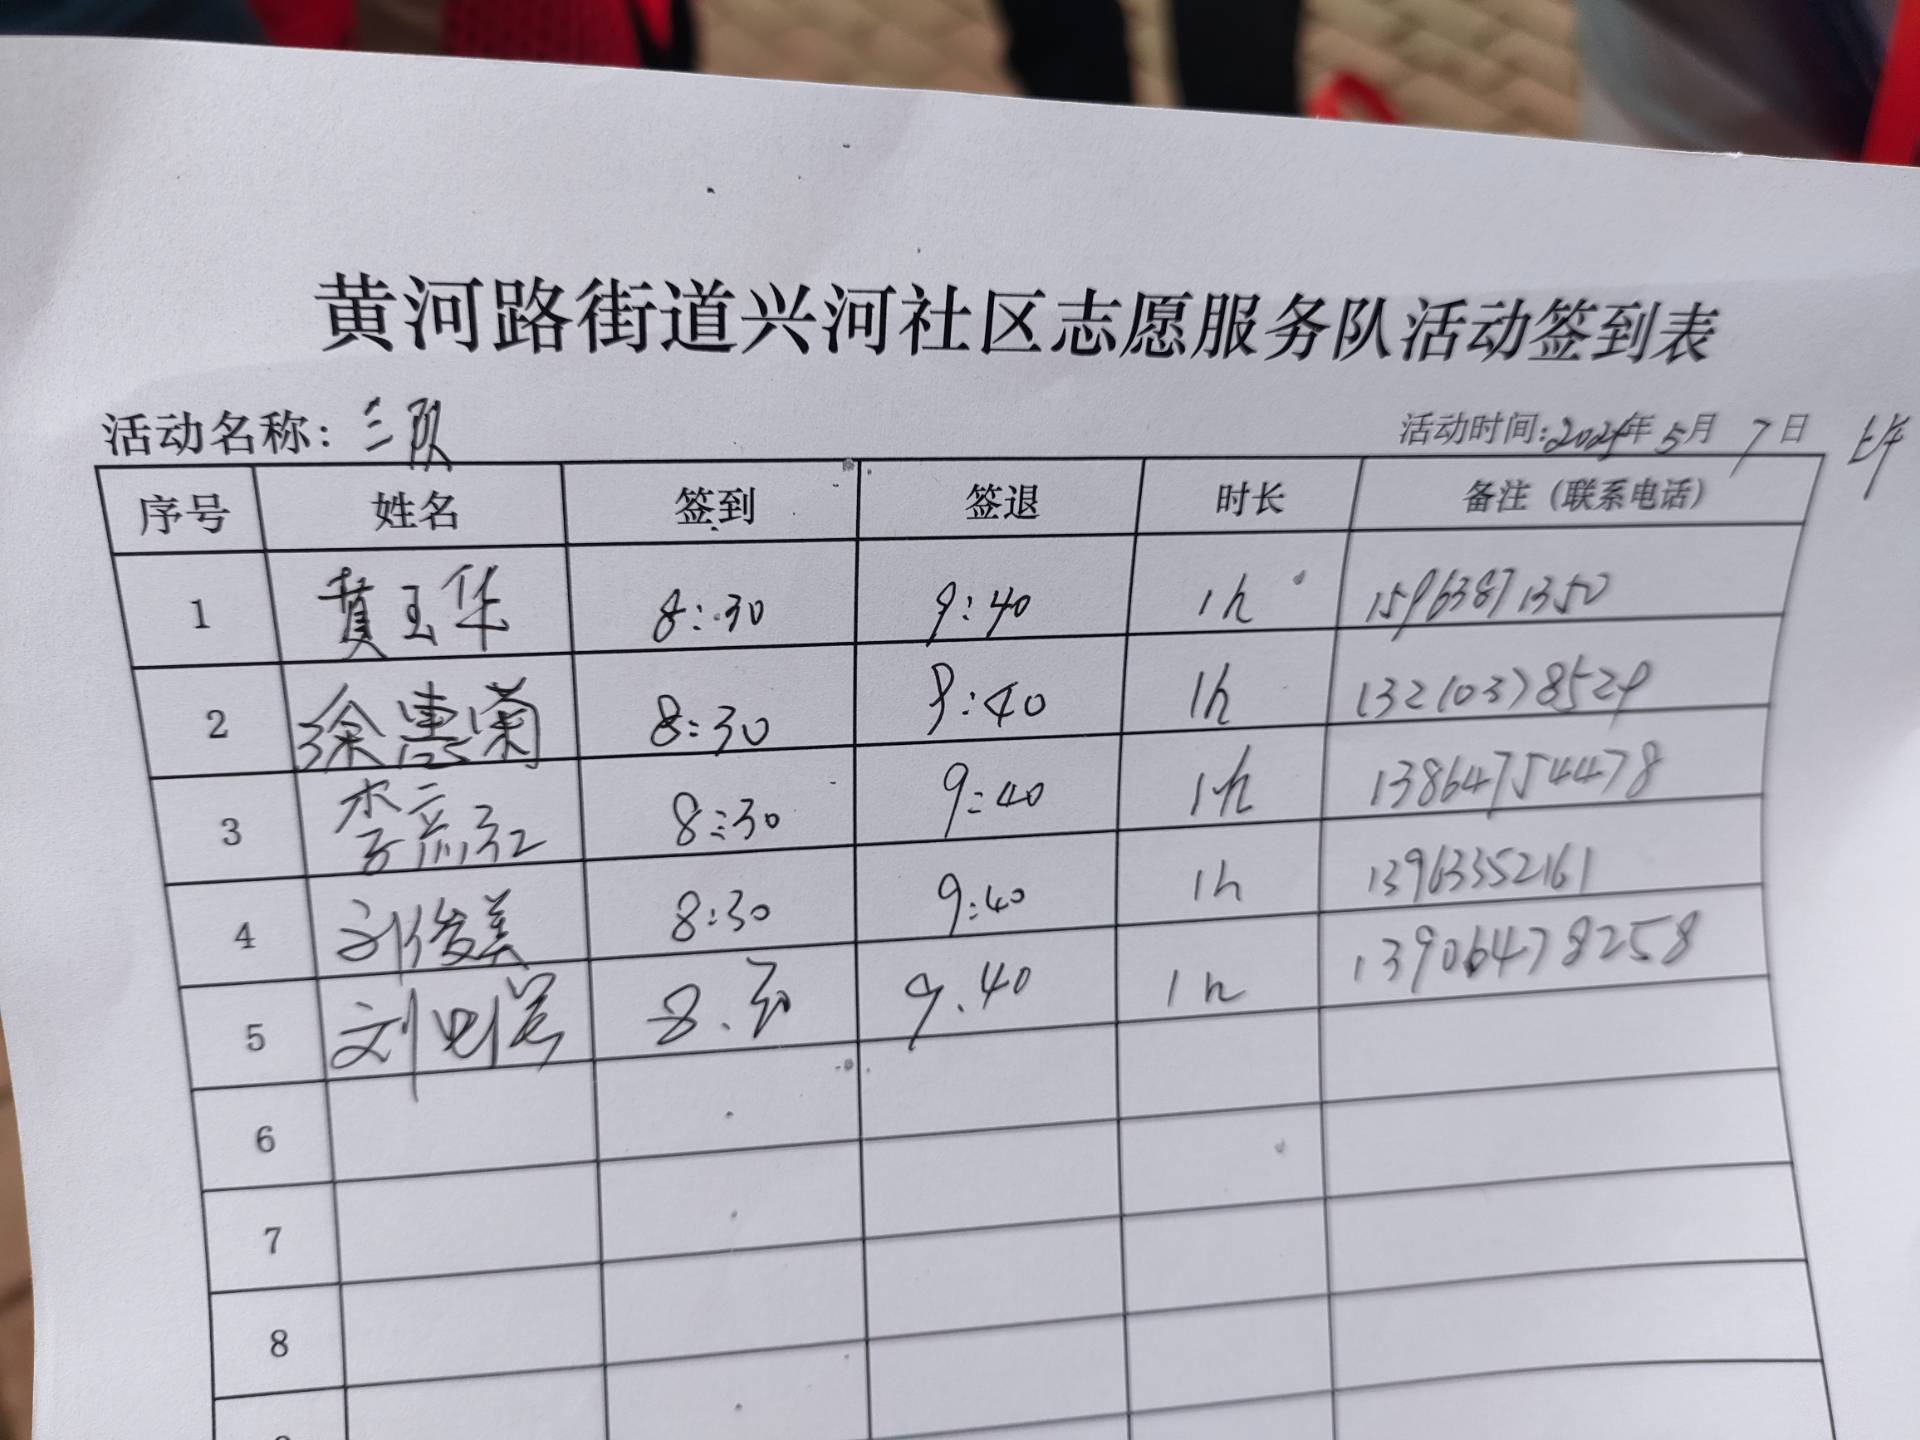 黄河路街道兴河社区志愿服务队活动签到表
活动名称：三队 活动时间：2024年5月7日 上午
序号 姓名 签到 签退 时长 备注（联系电话）
1 黄玉华 8:30 9:40 1h 15963871350
2 徐惠菊 8:30 9:40 1h 13210378529
3 李彦红 8:30 9:40 1h 13864754478
4 刘俊美 8:30 9:40 1h 13963352161
5 刘 8.30 9.40 1h 13906478258
6
7
8